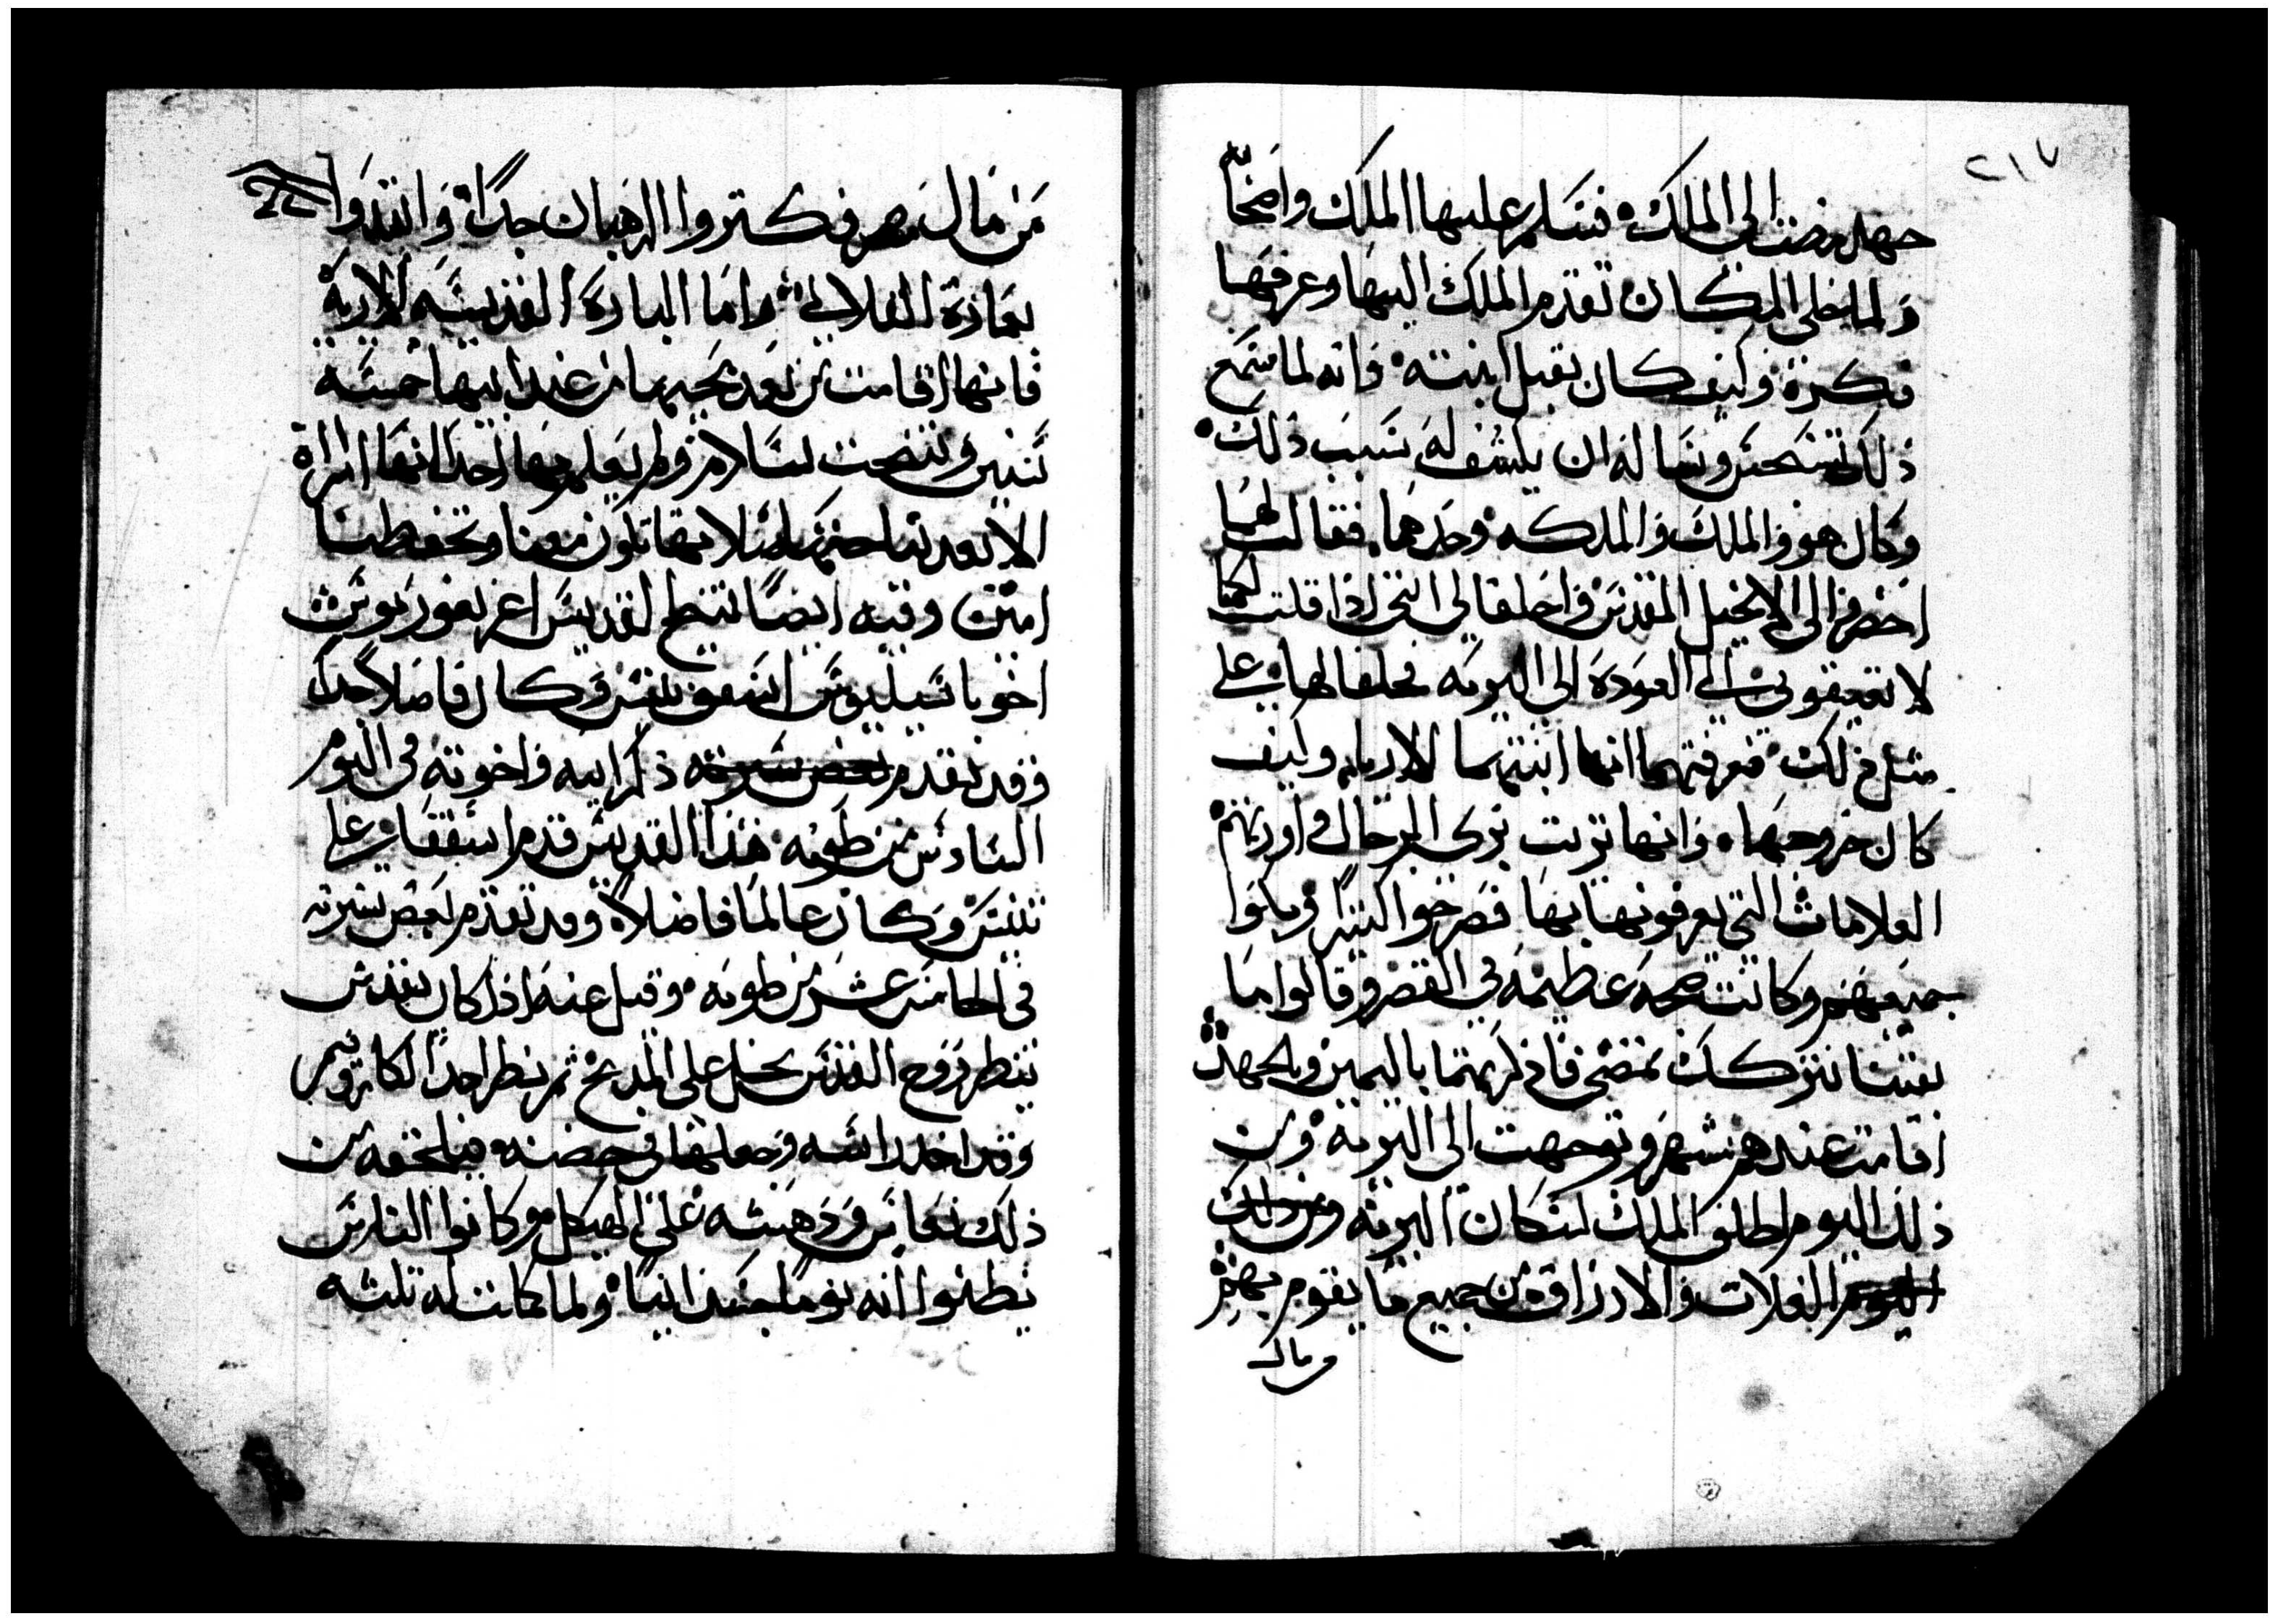 ٢١٧
جهد مضت الى الملك فسلم عليها الملك واضحاً
ولما خلى المكان تقدم الملك اليها وعرفها
فكره وكيف كان يقبل ابنته وانه لما سمع
ذلك وساله ان يكشف له سبب ذلك
وكان هو والملك والملكه وحدهما فقالت لهما
احضروا الى الانجيل المقدس واحلفا لي انني اذا قلت لكما
لا تعيقوني العودة الى البريه فحلفا لها على
مثل ذلك فعرفتهما انها ابنتهما الارية وكيف
كان خروجها وانها تزيت بزى الرجال واورتهم
العلامات التي يعرفونها بها فصرخوا كثيرا وبكوا
جميعهم وكانت ضجه عظيمه في القصر وقالوا ما
بقينا نتركك تمضي فاذكرتهما باليمين وبالجهد
اقامت عندهم شهر وتوجهت الى البريه ومن
ذلك اليوم اطلق الملك لسكان البريه ومن ذلك
اليوم الغلات والارزاق من جميع ما يقوم بهم
من مال
من مال مصر فكتروا الرهبان جداً وابتدوا
بعمارة القلالي واما الباره القديسه الارية
فانها اقامت من بعد مجيها من عند ابيها خمسه
سنين وتنيحت بسلام ولم يعلم بها احد انها امراة
الا بعد نياحتها صلاتها تكون معنا وتحفظنا
امين وفيه ايضا تنيح القديس اغريغوريوس
اخو باسيليوس اسقف نيسس وكان فاضلا جدا
وقد تقدم بعض سيرته ذكر ابيه واخوته في اليوم
السادس من طوبه هذا القديس قدم اسقفا على
نيسس وكان عالما فاضلا وقد تقدم بعض سيرته
في الخامسه عشر من طوبه وقيل عنه اذا كان يقدس
ينظر روح القدس يحل على المدبح ثم ينظر احد الكاروبيم
وقد اخد راسه وجعلها في حضنه فيلحقه من
ذلك نعاس ودهشه على الهيكل وكانوا الناس
يظنوا انه نوما جسدانيا ولما كانت له تلته